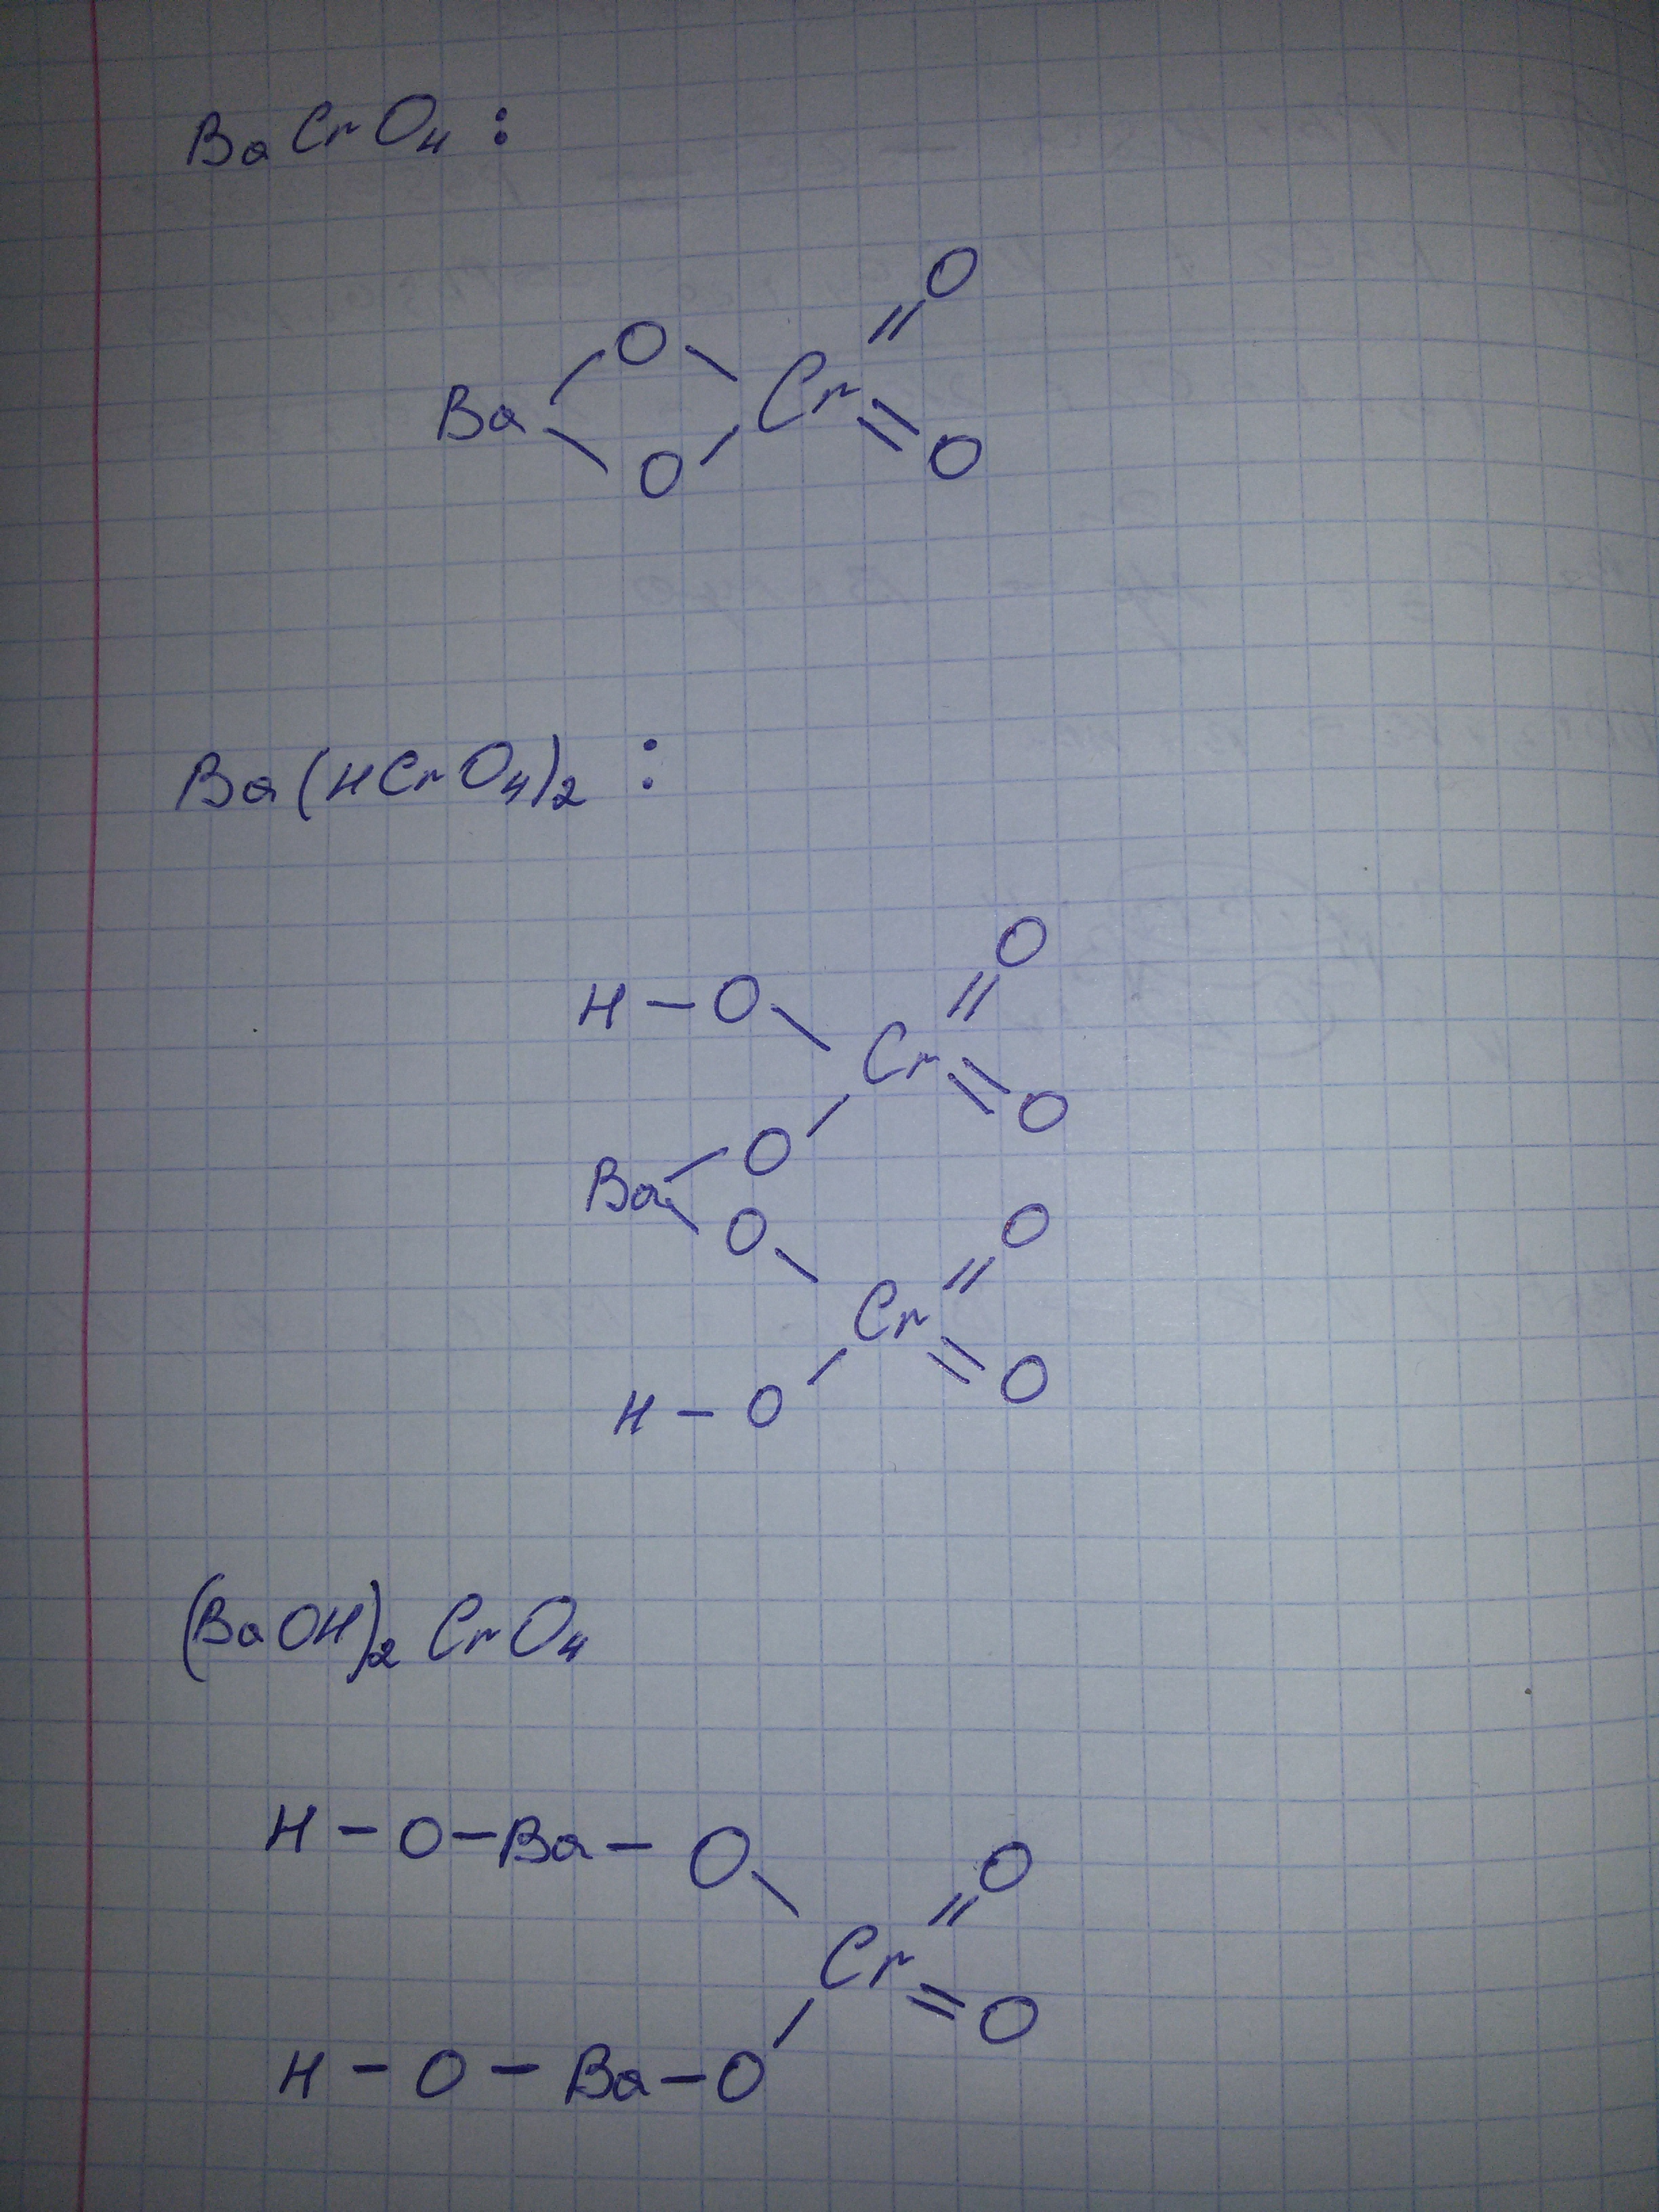 BaCrO4:
O
O
Ba Cr
O O
Ba(HCrO4)2:
O
H-O
Cr
O
O
Ba
O O
Cr
O
H-O
(BaOH)2CrO4
H-O-Ba-O O
Cr
O
H-O-Ba-O